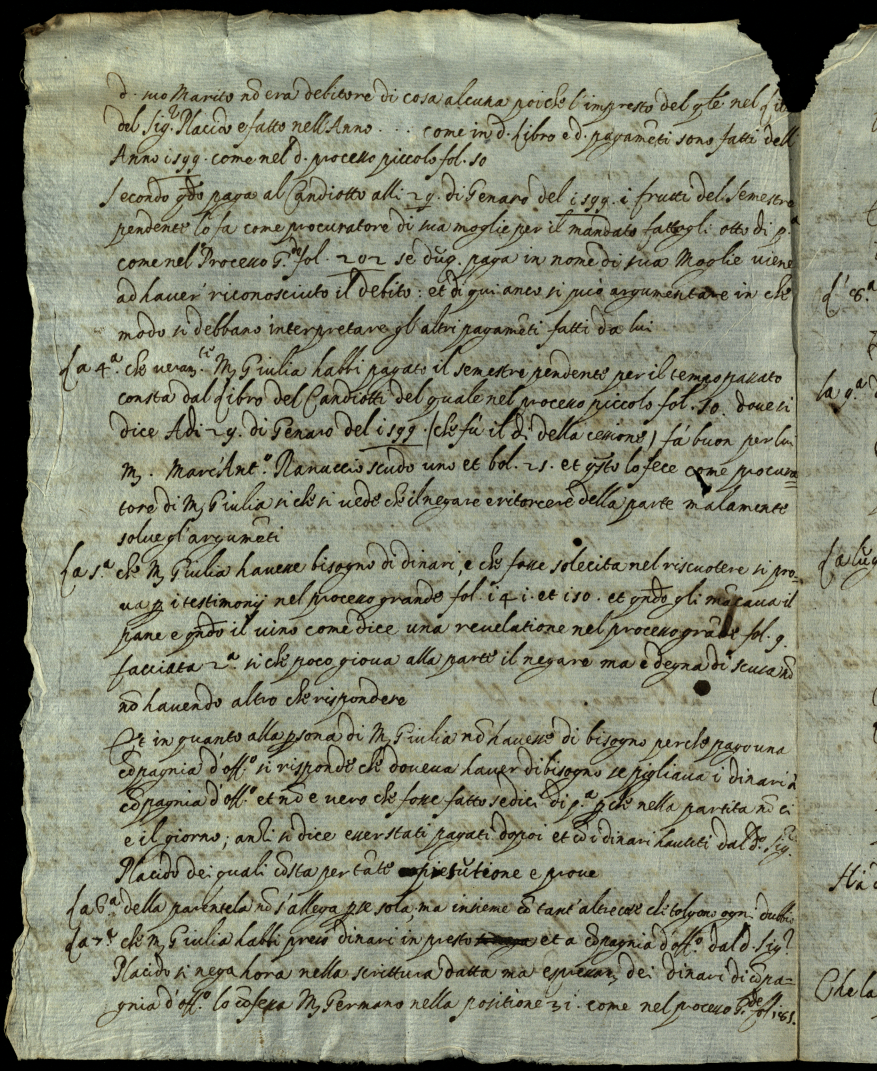 d. suo Marito nō era debitore di cosa alcuna poiche l'impresto del qle nel lib
del Sig.r Placido e fatto nell'Anno . . . come in d. libro e d. pagamēti sono fatti dell
Anno 1599. come nel d. processo piccolo fol. 50
Secondo qdo paga al Candiotto alli 29. di Genaro del 1599. i frutti del semestre
pendente lo fa come procuratore di sua moglie per il mandato fattogli otto dì p.a
come nel Processo G.de fol. 202 se duq. paga in nome di sua Moglie viene
ad haver riconosciuto il debito: et di qui anco si può argumentare in che
modo si debbano interpretare gl'altri pagamēti fatti da lui
La 4.a che veram.te M. Giulia habbi pagato il semestre pendente per il tempo passato
consta dal libro del Candiotti del quale nel processo piccolo fol. 50. dove si
dice Adi 29. di Genaro del 1599. (che fù il dì della cessione) fà buon per lui
M. Marc'Ant.o Ranuccio scudo uno et bol. 25. et qsto lo fece come procura=
tore di M. Giulia si che si vede che il negare e ritorcere della parte malamente
solve gl'argumēti
La 5.a che M. Giulia havesse bisogno di dinari, e che fosse solecita nel riscuotere si pro=
va p i testimonij nel processo grande fol. 141. et 150. et qndo gli mācava il
pane e qndo il vino come dice una revelatione nel processo grāde fol. 9.
facciata 2.a si che poco giova alla parte il negare ma è degna di scusa nō
nō havendo altro che rispondere
Et in quanto alla psona di M. Giulia nō havesse di bisogno perche pagò una
cōpagnia d'off.o si risponde che doveva haver di bisogno se pigliava i dinari à
cōpagnia d'off.o et nō e vero che fosse fatto sedici dì p.a pche nella partita nō ci
e il giorno; anzi si dice esser stati pagati dopoi et cō i dinari havuti dal d.o Sig.r
Placido dei quali cōsta per tāte e prove
La 6.a della parentela nō s'allega pse sola, ma insieme cō tant'altre cose che tolgono ogni dubbio
La 7.a che M. Giulia habbi preso dinari in presto et a cōpagnia d'off.o dal d. Sig.r
Placido si nega hora nella scrittura datta ma espressam. dei dinari di cōpa=
gnia d'off.o lo cōfessa M. Germano nella positione 31. come nel processo G.de fol. 185.
L'8.a
la 9.a
La lug
Ha
Che la